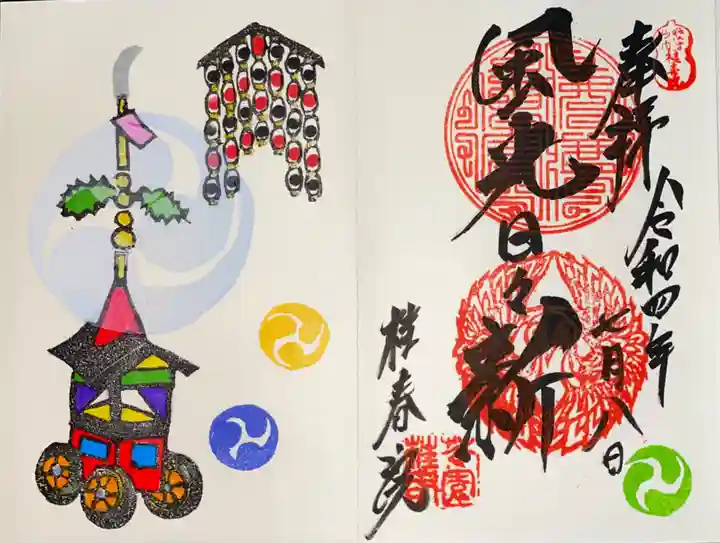 奉拝
令和四年
七月八日
風光日々新
桂春院